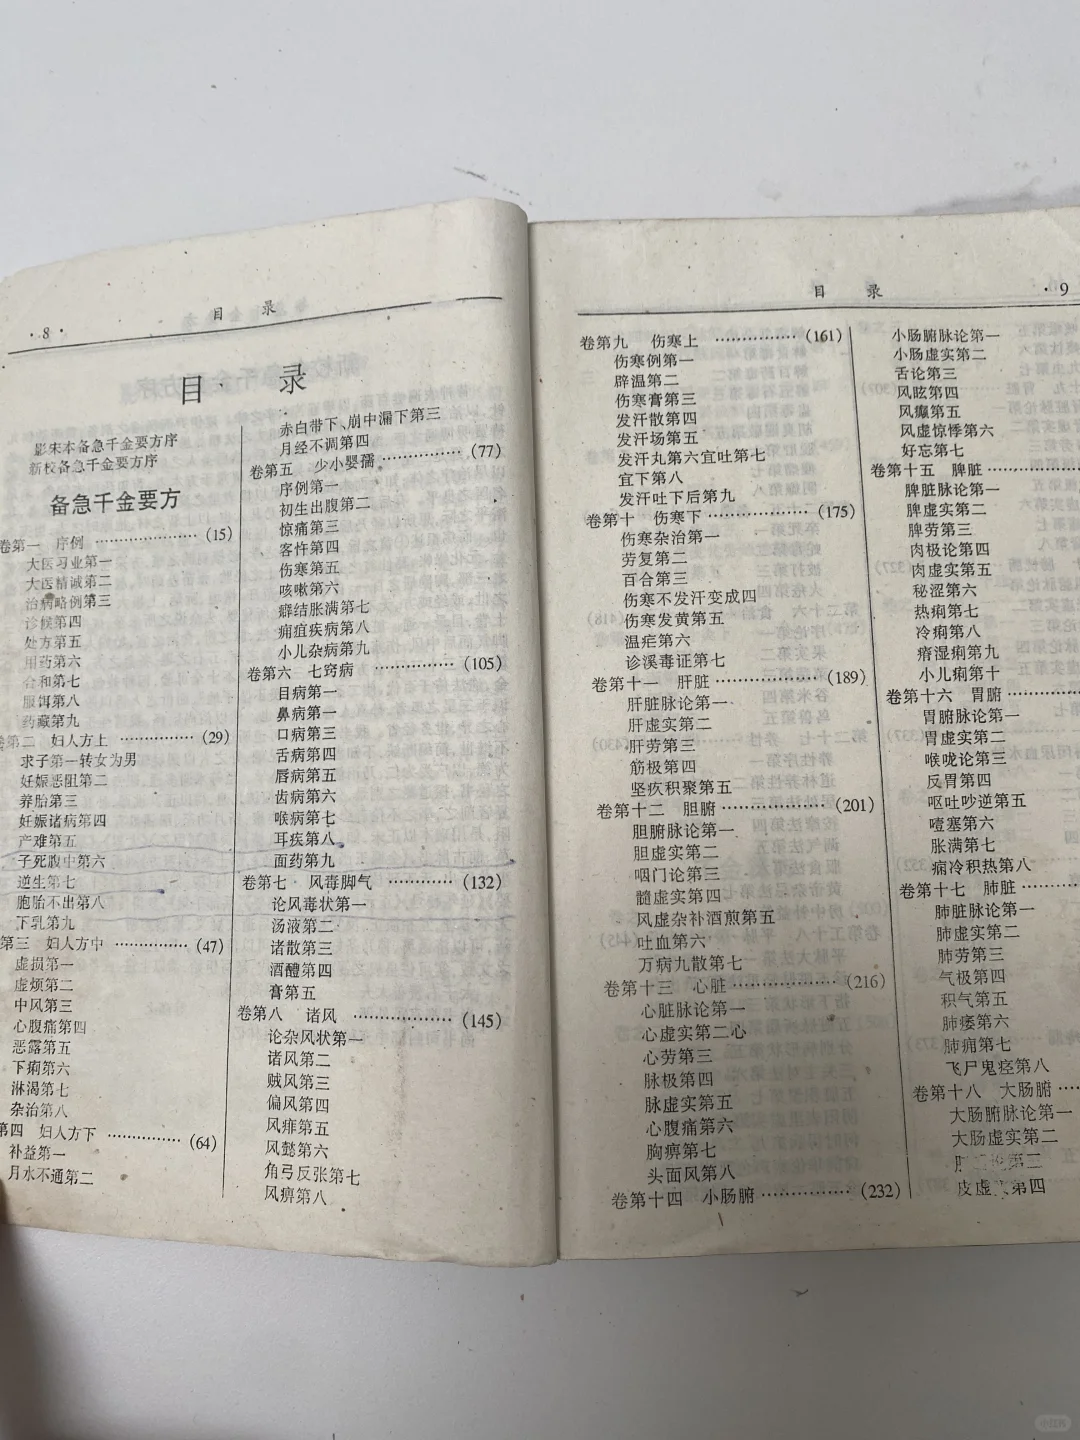 ·8·
目 录
目 录
影宋本备急千金要方序
新校备急千金要方序
备急千金要方
卷第一 序例 ……………… (15)
大医习业第一
大医精诚第二
治病略例第三
诊候第四
处方第五
用药第六
合和第七
服饵第八
药藏第九
卷第二 妇人方上 ……………… (29)
求子第一转女为男
妊娠恶阻第二
养胎第三
妊娠诸病第四
产难第五
子死腹中第六
逆生第七
胞胎不出第八
下乳第九
第三 妇人方中 ……………… (47)
虚损第一
虚烦第二
中风第三
心腹痛第四
恶露第五
下痢第六
淋渴第七
杂治第八
第四 妇人方下 ……………… (64)
补益第一
月水不通第二
赤白带下、崩中漏下第三
月经不调第四
卷第五 少小婴孺 ……………… (77)
序例第一
初生出腹第二
惊痫第三
客忤第四
伤寒第五
咳嗽第六
癖结胀满第七
痈疽疾病第八
小儿杂病第九
卷第六 七窍病 ……………… (105)
目病第一
鼻病第一
口病第三
舌病第四
唇病第五
齿病第六
喉病第七
耳疾第八
面药第九
卷第七 风毒脚气 ……………… (132)
论风毒状第一
汤液第二
诸散第三
酒醴第四
膏第五
卷第八 诸风 ……………… (145)
论杂风状第一
诸风第二
贼风第三
偏风第四
风痱第五
风懿第六
角弓反张第七
风痹第八
目 录
·9
卷第九 伤寒上 ……………… (161)
伤寒例第一
辟温第二
伤寒膏第三
发汗散第四
发汗场第五
发汗丸第六宜吐第七
宜下第八
发汗吐下后第九
卷第十 伤寒下 ……………… (175)
伤寒杂治第一
劳复第二
百合第三
伤寒不发汗变成四
伤寒发黄第五
温疟第六
诊溪毒证第七
卷第十一 肝脏 ……………… (189)
肝脏脉论第一
肝虚实第二
肝劳第三
筋极第四
坚疚积聚第五
卷第十二 胆腑 ……………… (201)
胆腑脉论第一
胆虚实第二
咽门论第三
髓虚实第四
风虚杂补酒煎第五
吐血第六
万病九散第七
卷第十三 心脏 ……………… (216)
心脏脉论第一
心虚实第二心
心劳第三
脉极第四
脉虚实第五
心腹痛第六
胸痹第七
头面风第八
卷第十四 小肠腑 ……………… (232)
小肠腑脉论第一
小肠虚实第二
舌论第三
风眩第四
风癫第五
风虚惊悸第六
好忘第七
卷第十五 脾脏 ………………
脾脏脉论第一
脾虚实第二
脾劳第三
肉极论第四
肉虚实第五
秘涩第六
热痢第七
冷痢第八
疳湿痢第九
小儿痢第十
卷第十六 胃腑 ………………
胃腑脉论第一
胃虚实第二
喉咙论第三
反胃第四
呕吐吵逆第五
噎塞第六
胀满第七
痼冷积热第八
卷第十七 肺脏 ………………
肺脏脉论第一
肺虚实第二
肺劳第三
气极第四
积气第五
肺痿第六
肺痈第七
飞尸鬼痉第八
卷第十八 大肠腑 ………………
大肠腑脉论第一
大肠虚实第二
第三
皮虚 第四